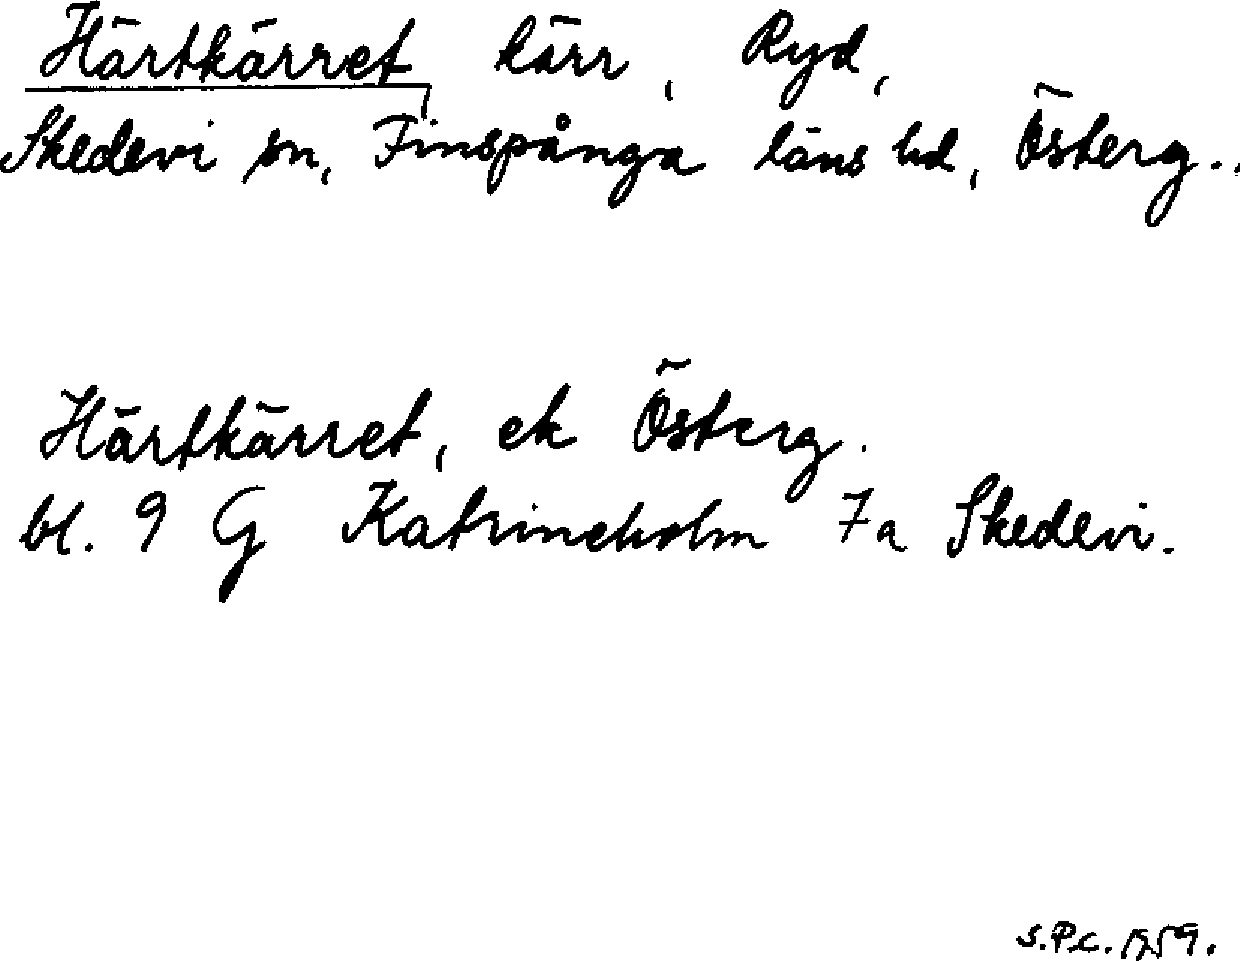 Härtkärret, kärr, Ryd,
Skedevi sn, Finspånga läns hd, Österg..
Härtkärret, ek Österg.
bl. 9 G Katrineholm 7a Skedevi.
S.P.C. 1959.